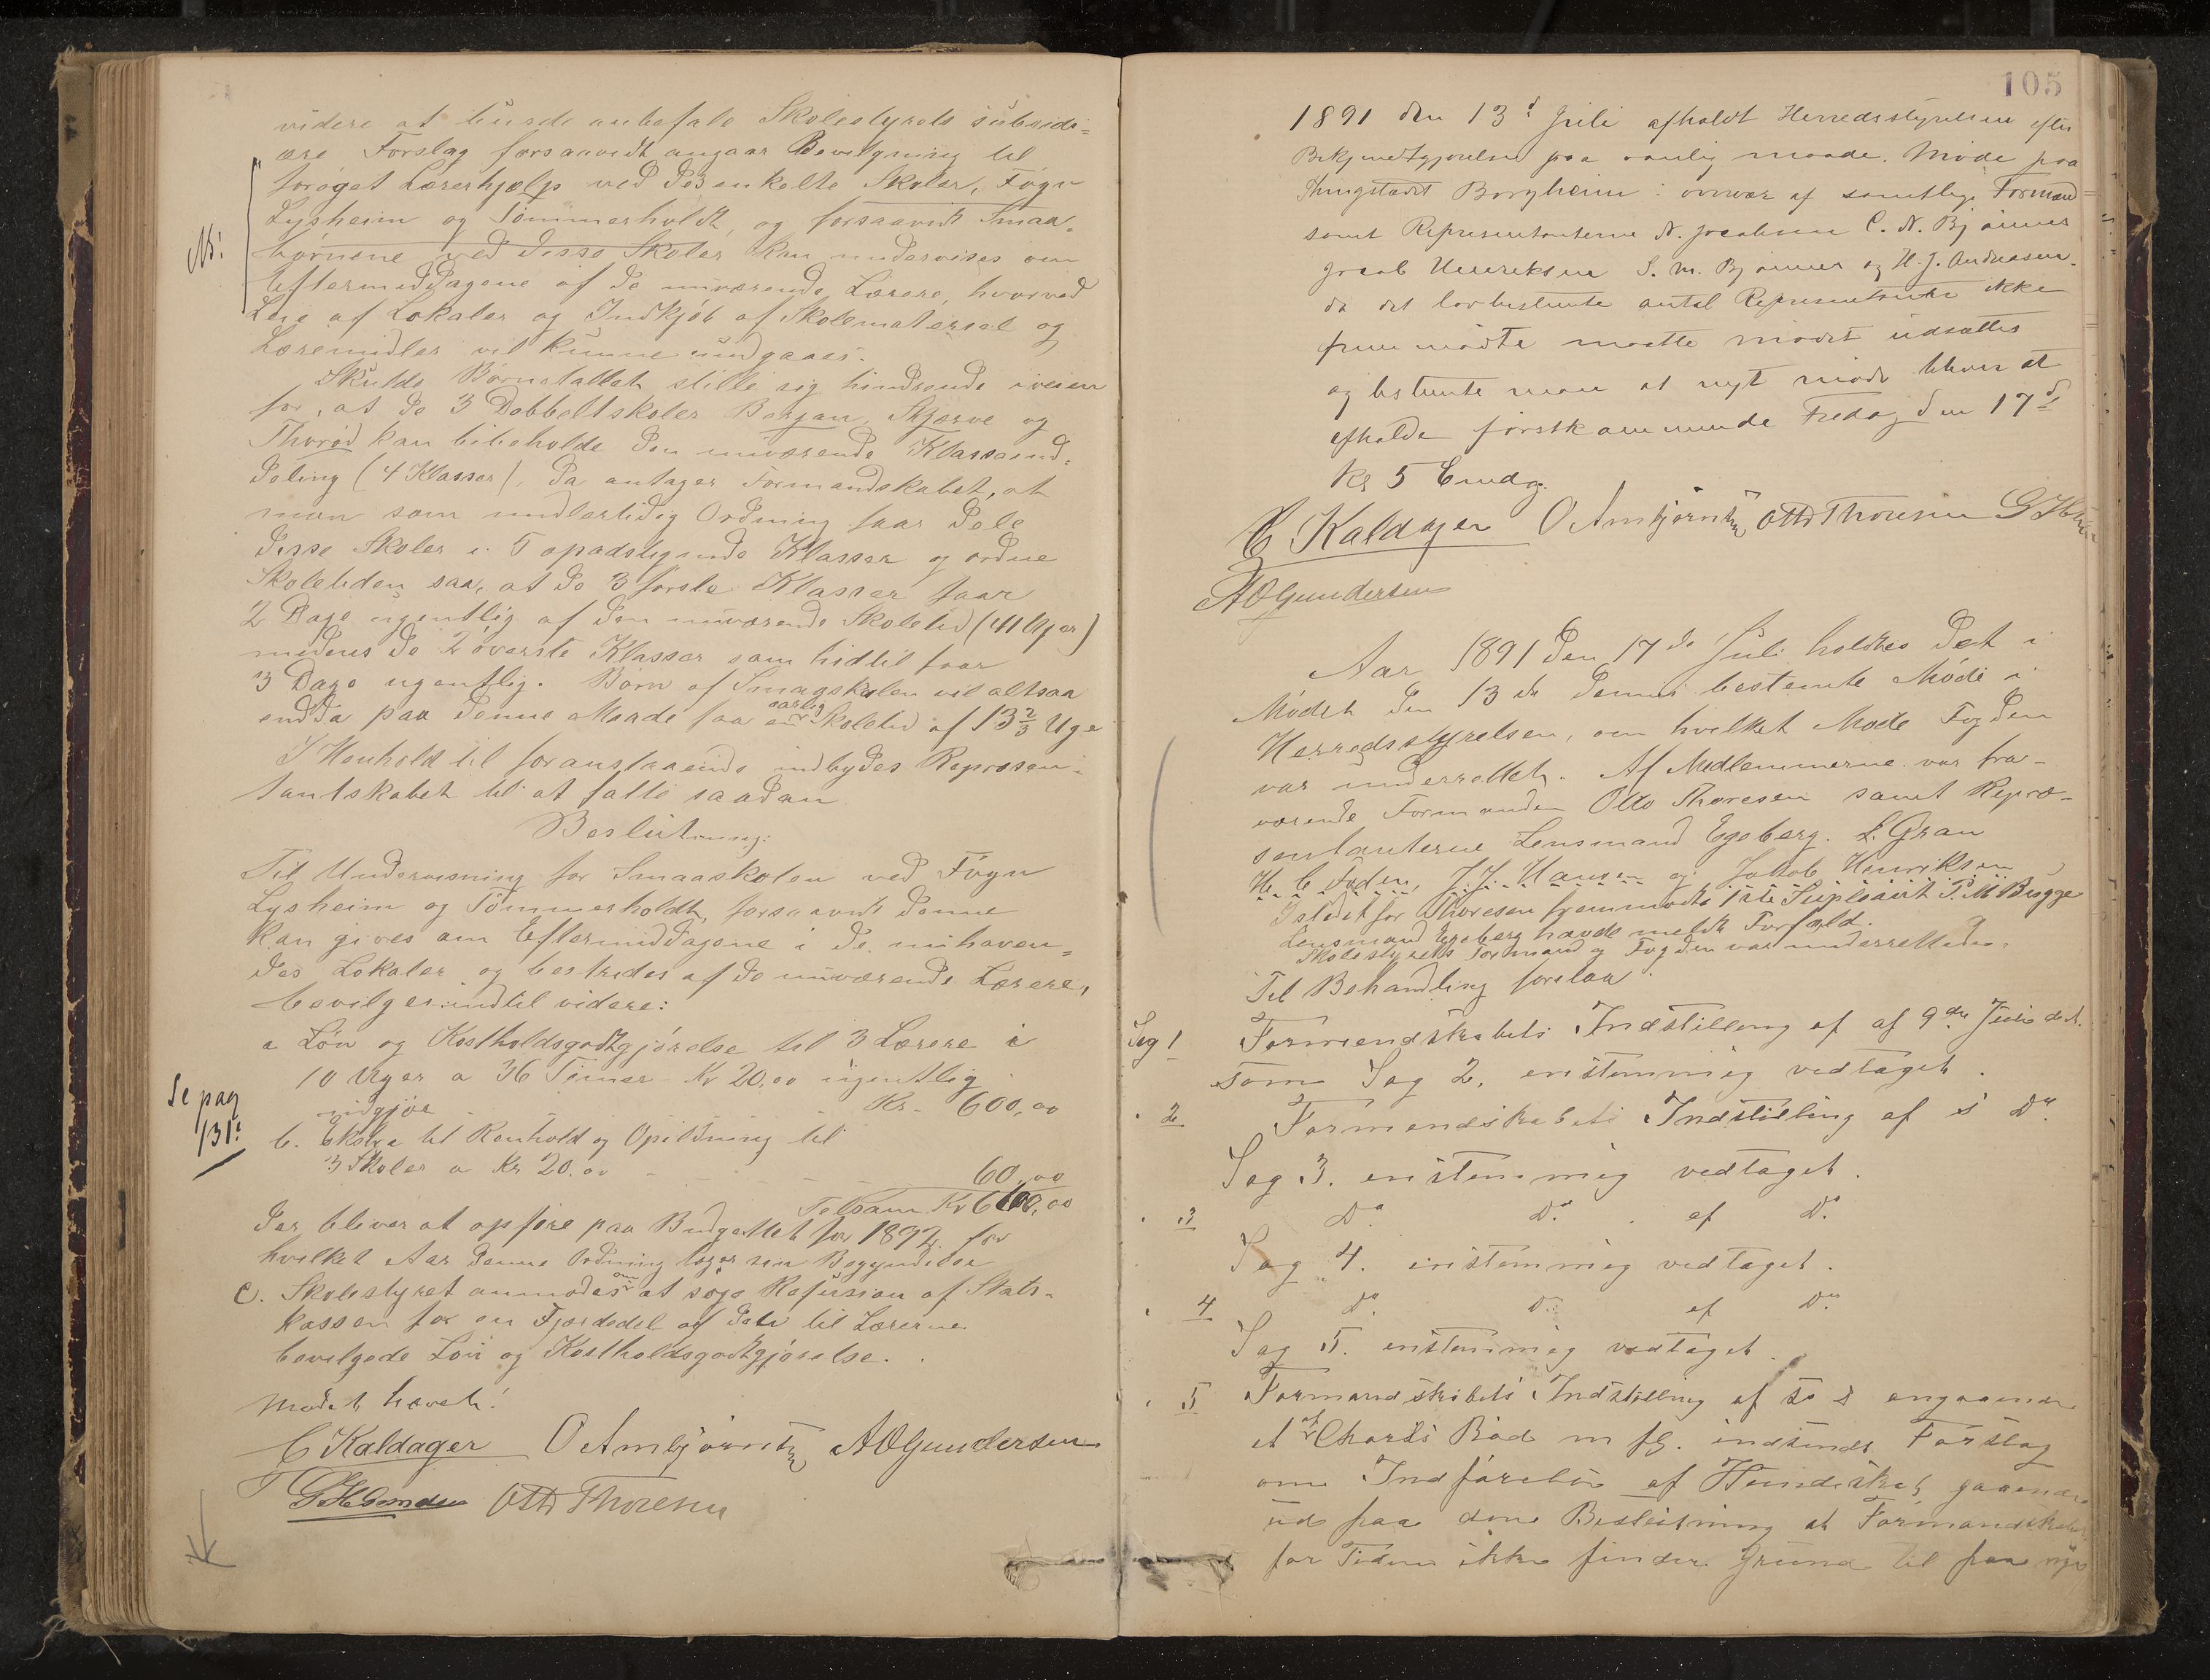 videre at burde anbefale Skolestyrets subsidi=
ære Forslag forsaavidt angaar Bevilgning til
forøget Lærerhjælp ved de enkelte Skoler, Føgn
Lysheim og Tømmerholdt, og forsaavidt Smaa=
børnene ved disse Skoler kan undervises om
Eftermiddagene af de nuværende Lærere, hvorved
Leie af Lokaler og Indkjøb af Skolemateriel og
Læremidler vil kunne undgaaes.
Skulde Børnetallet stille sig hindrende iveien
for, at de 3 Dobbeltskoler Borjan, Skjerve og
Thorød kan bibeholde den nuværende Klasseind=
deling (4 Klasser), da antager Formandskabet, at
man som midlertidig Ordning faar dele
disse Skoler i 5 opadstigende Klasser og ordne
Skoletiden saa, at de 3 første Klasser faar
2 Dage ugentlig af den nuværende Skoletid (41 Uger)
medens de 2 øverste Klasser som hidtil faar
3 Dage ugentlig. Børn af Smaaskolen vil altsaa
endda paa denne Maade faa en aarlig Skoletid af 13 2/3 Uge
I Henhold til foranstaaende indbydes Repræsen=
tantskabet til at fatte saadan
Beslutning:
Til Undervisning for Smaaskolen ved Føgn
Lysheim og Tømmerholdt, forsaavidt denne
kan gives om Eftermiddagene i de nuhaven=
des Lokaler og bestrides af de nuværende Lærere,
bevilges indtil videre:
a Løn og Kostholdsgodtgjørelse til 3 Lærere i
10 Uger a 36 Timer Kr 20,00 ugentlig
udgjør Kr. 600,00
Se pag
131:
b. til Renhold og Opildning til
3 Skoler a Kr 20.00 60,00
Tilsam. Kr 660,00
der bliver at opføre paa Budgettet for 1892 for
hvilket Aar denne Ordning tager sin Begyndelse
c. Skolestyret anmodes om at søge Refusion af Stats=
kassen for en Fjerdedel af den til Lærerne
bevilgede Løn og Kostholdsgodtgjørelse.
Mødet hævet!
C Kaldager O Arnbjørnsen A O Gundersen
Otto Thoresen
105
1891 den 13d Juli afholdt Herredsstyrelsen efter
Bekjendtgjørelse paa vanlig maade. Møde paa
Thingstedet Borgheim i overvær af samtlige Formænd
samt Repræsentanterne N. Jacobsen C. N. Bjønnes
Jacob Henriksen S. M. Bjønnes og H. J. Andreasen.
da det lovbestemte antal Repræsentanter ikke
fremmødte maatte mødet udsættes
og bestemte man at nyt møde bliver at
afholde førstkommende Fredag den 17d
Kl 5 Emdg.
C Kaldager O Arnbjørnsen Otto Thoresen
A O Gundersen
Aar 1891 den 17de Juli holdtes det i
Mødet den 13de dennes bestemte Møde i
Herredsstyrelsen, om hvilket Møde Fogden
var underrettet. Af Medlemmerne var fra-
værende Formanden Otto Thoresen samt Repræ-
sentanterne Lensmand Egeberg. L. Gran
H. C. Foden, J. J. Hansen og Jakob Henriksen
Istedet for Thoresen fremmødte 1ste Supleant P. M Bugge
Lensmand Egeberg havde meldt Forfald.
Skolestyrets Formand og Fogden var underrettede.
Til Behandling forelaa
Sag 1 Formandskabets Indstilling af af 9de Juli d.A.
som Sag 2, enstemmig vedtaget.
" 2 Formandskabets Indstilling af s Do
Sag 3. enstemmig vedtaget.
" 3 Do Do af Do
Sag 4. enstemmig vedtaget.
" 4 Do Do af Do
Sag 5. enstemmig vedtaget.
" 5 Formandskabets Indstilling af angaaende
et af Charls Rød m fl. indsendt Forslag
om Indførelse af Hundeskat, gaaende
ud paa den Beslutning at Formandskabet
for Tiden ikke finder Grund til paa nye